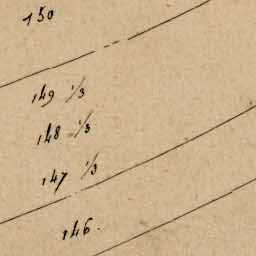 150
149 1/3
148 1/3
147 1/3
146.